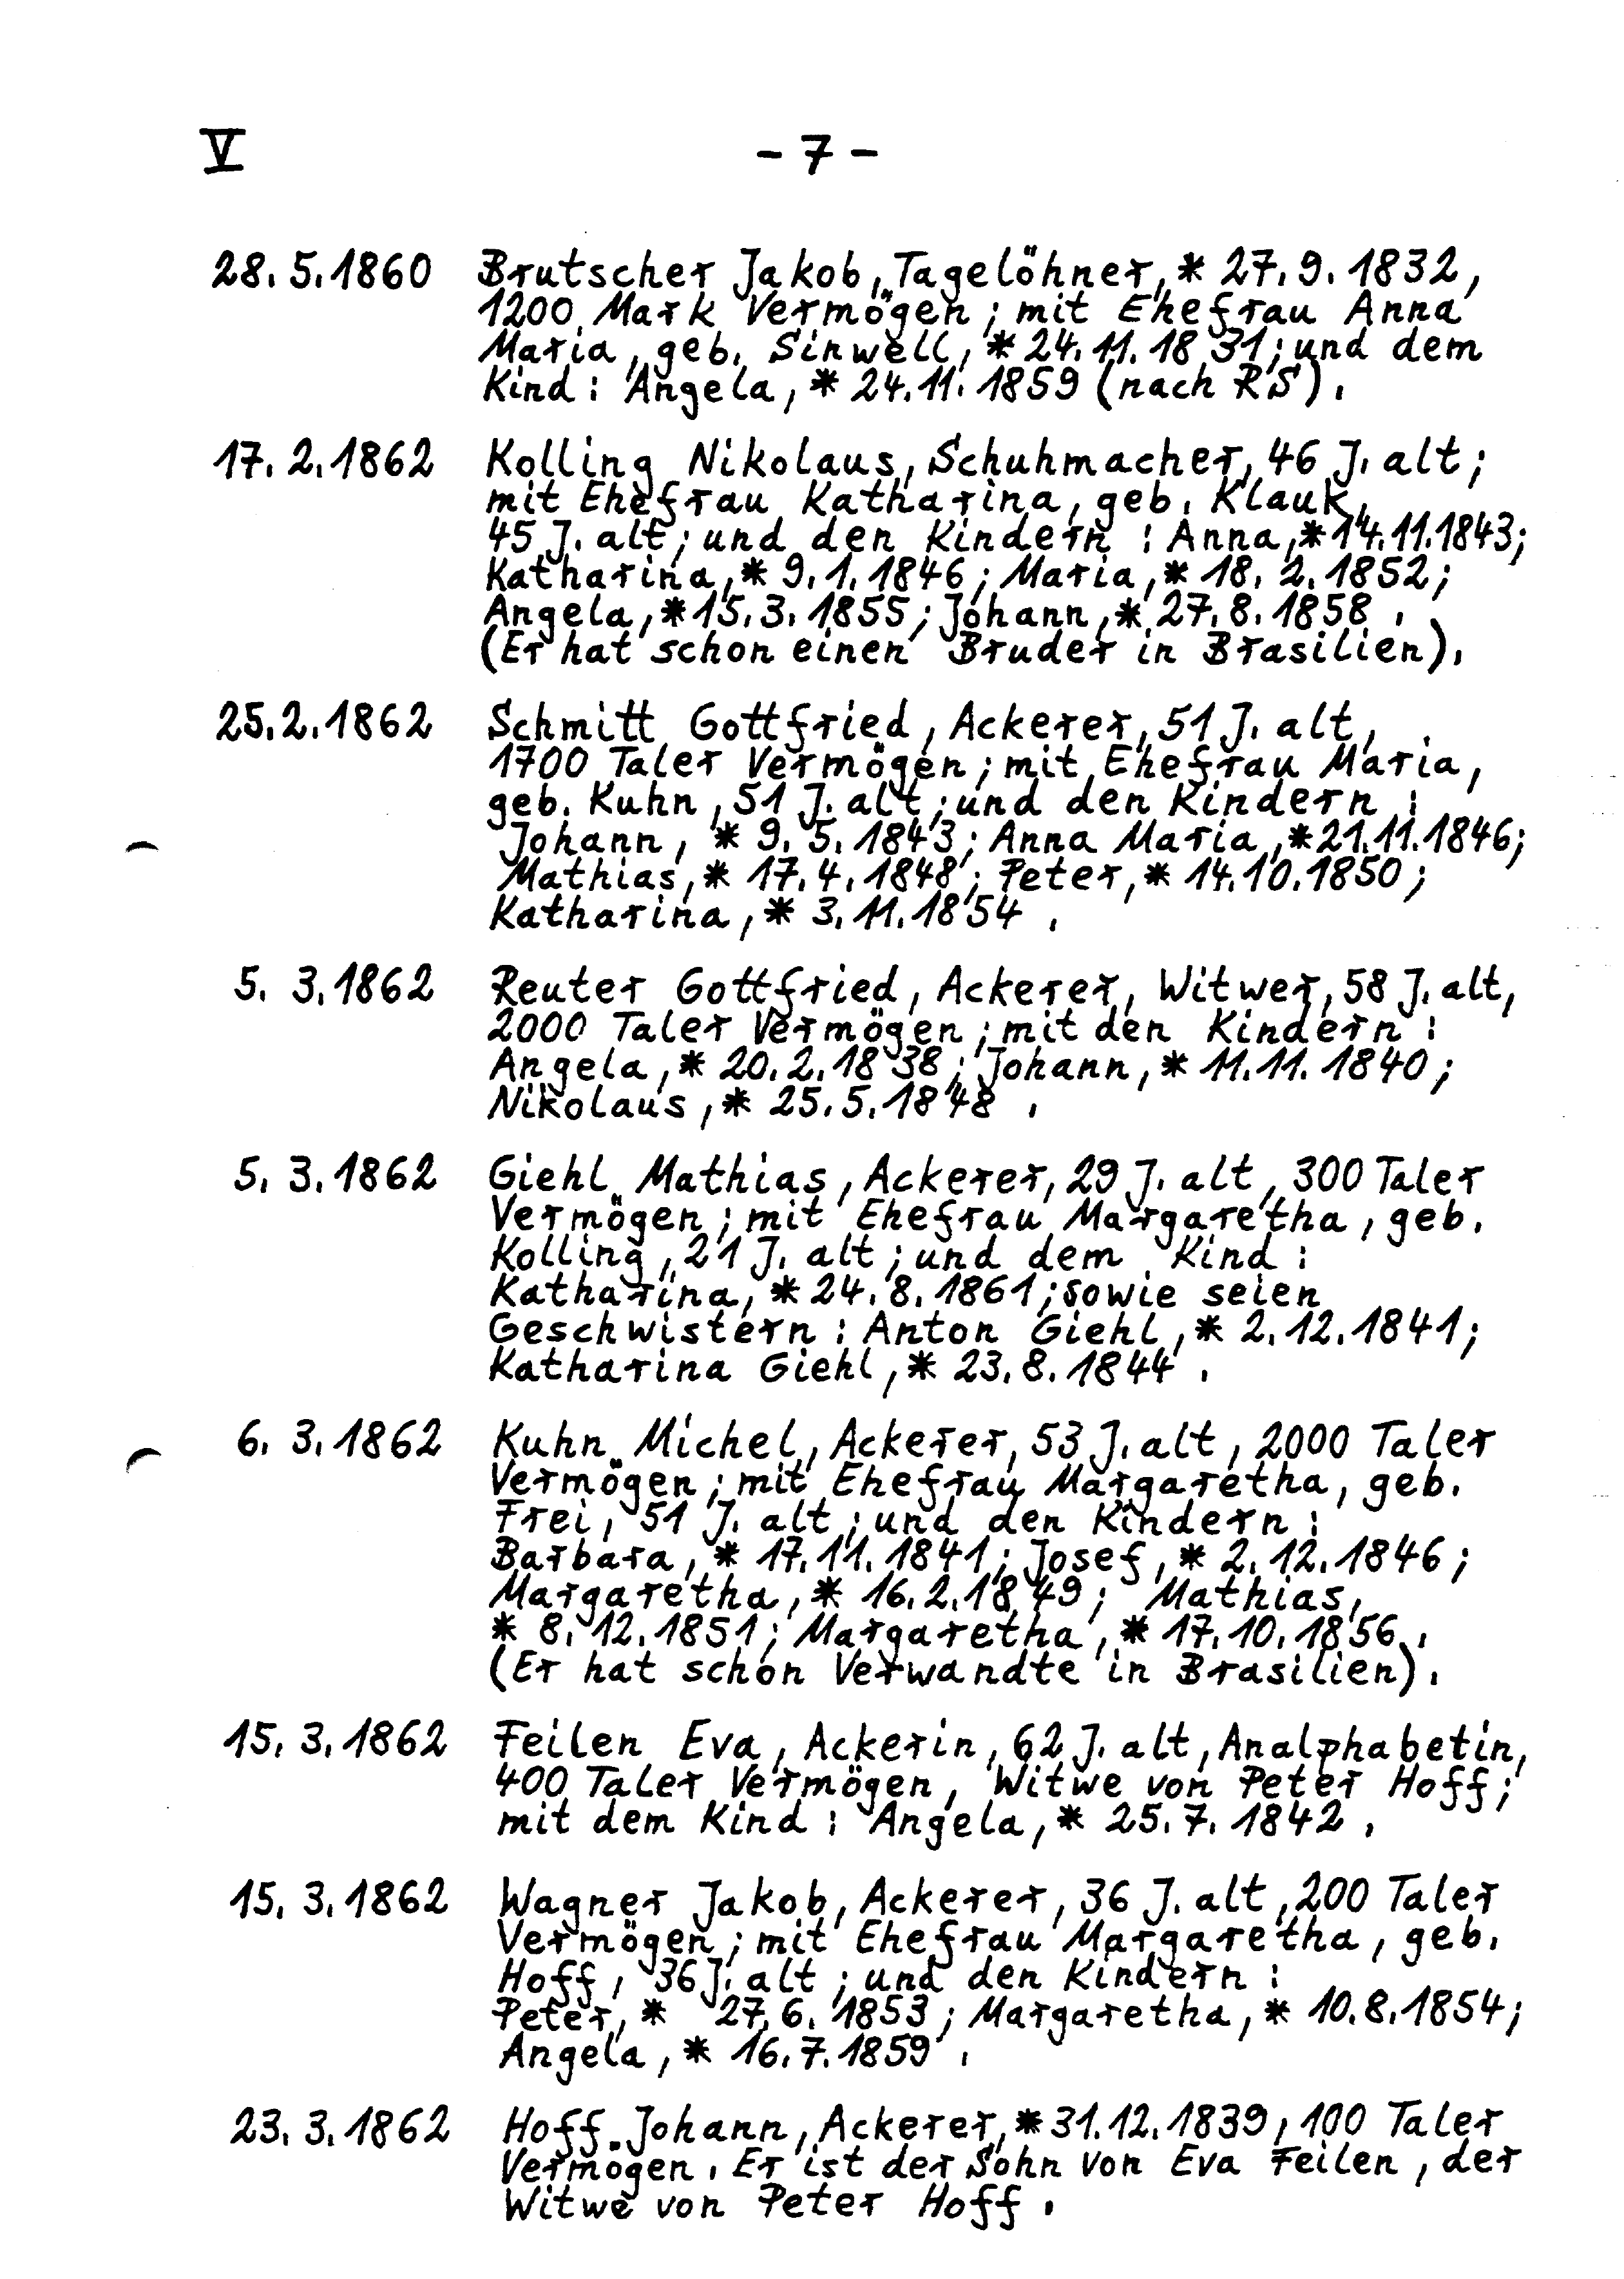 V - 7 -
28. 5. 1860 Brutscher Jakob, Tagelöhner, * 27. 9. 1832,
1200 Mark Vermögen; mit Ehefrau Anna
Maria, geb. Sinwell, * 24. 11. 1831; und dem
Kind: Angela, * 24. 11. 1859 (nach RS).
17. 2. 1862 Kolling Nikolaus, Schuhmacher, 46 J. alt;
mit Ehefrau Katharina, geb. Klauk,
45 J. alt; und den Kindern: Anna, * 14. 11. 1843;
Katharina, * 9. 1. 1846; Maria, * 18. 2. 1852;
Angela, * 15. 3. 1855; Johann, * 27. 8. 1858.
(Er hat schon einen Bruder in Brasilien).
25. 2. 1862 Schmitt Gottfried, Ackerer, 51 J. alt,
1700 Taler Vermögen; mit Ehefrau Maria,
geb. Kuhn, 51 J. alt; und den Kindern:
Johann, * 9. 5. 1843; Anna Maria, * 21. 11. 1846;
Mathias, * 17. 4. 1848; Peter, * 14. 10. 1850;
Katharina, * 3. 11. 1854.
5. 3. 1862 Reuter Gottfried, Ackerer, Witwer, 58 J. alt,
2000 Taler Vermögen; mit den Kindern:
Angela, * 20. 2. 1838; Johann, * 11. 11. 1840;
Nikolaus, * 25. 5. 1848.
5. 3. 1862 Giehl Mathias, Ackerer, 29 J. alt, 300 Taler
Vermögen; mit Ehefrau Margaretha, geb.
Kolling, 21 J. alt; und dem Kind:
Katharina, * 24. 8. 1861; sowie seien
Geschwistern: Anton Giehl, * 2. 12. 1841;
Katharina Giehl, * 23. 8. 1844.
6. 3. 1862 Kuhn Michel, Ackerer, 53 J. alt, 2000 Taler
Vermögen; mit Ehefrau Margaretha, geb.
Frei, 51 J. alt; und den Kindern:
Barbara, * 17. 11. 1841; Josef, * 2. 12. 1846;
Margaretha, * 16. 2. 1849; Mathias,
* 8. 12. 1851; Margaretha, * 17. 10. 1856.
(Er hat schon Verwandte in Brasilien).
15. 3. 1862 Feilen Eva, Ackerin, 62 J. alt, Analphabetin,
400 Taler Vermögen, Witwe von Peter Hoff;
mit dem Kind: Angela, * 25. 7. 1842.
15. 3. 1862 Wagner Jakob, Ackerer, 36 J. alt, 200 Taler
Vermögen; mit Ehefrau Margaretha, geb.
Hoff, 36 J. alt; und den Kindern:
Peter, * 27. 6. 1853; Margaretha, * 10. 8. 1854;
Angela, * 16. 7. 1859.
23. 3. 1862 Hoff Johann, Ackerer, * 31. 12. 1839, 100 Taler
Vermögen. Er ist der Sohn von Eva Feilen, der
Witwe von Peter Hoff.